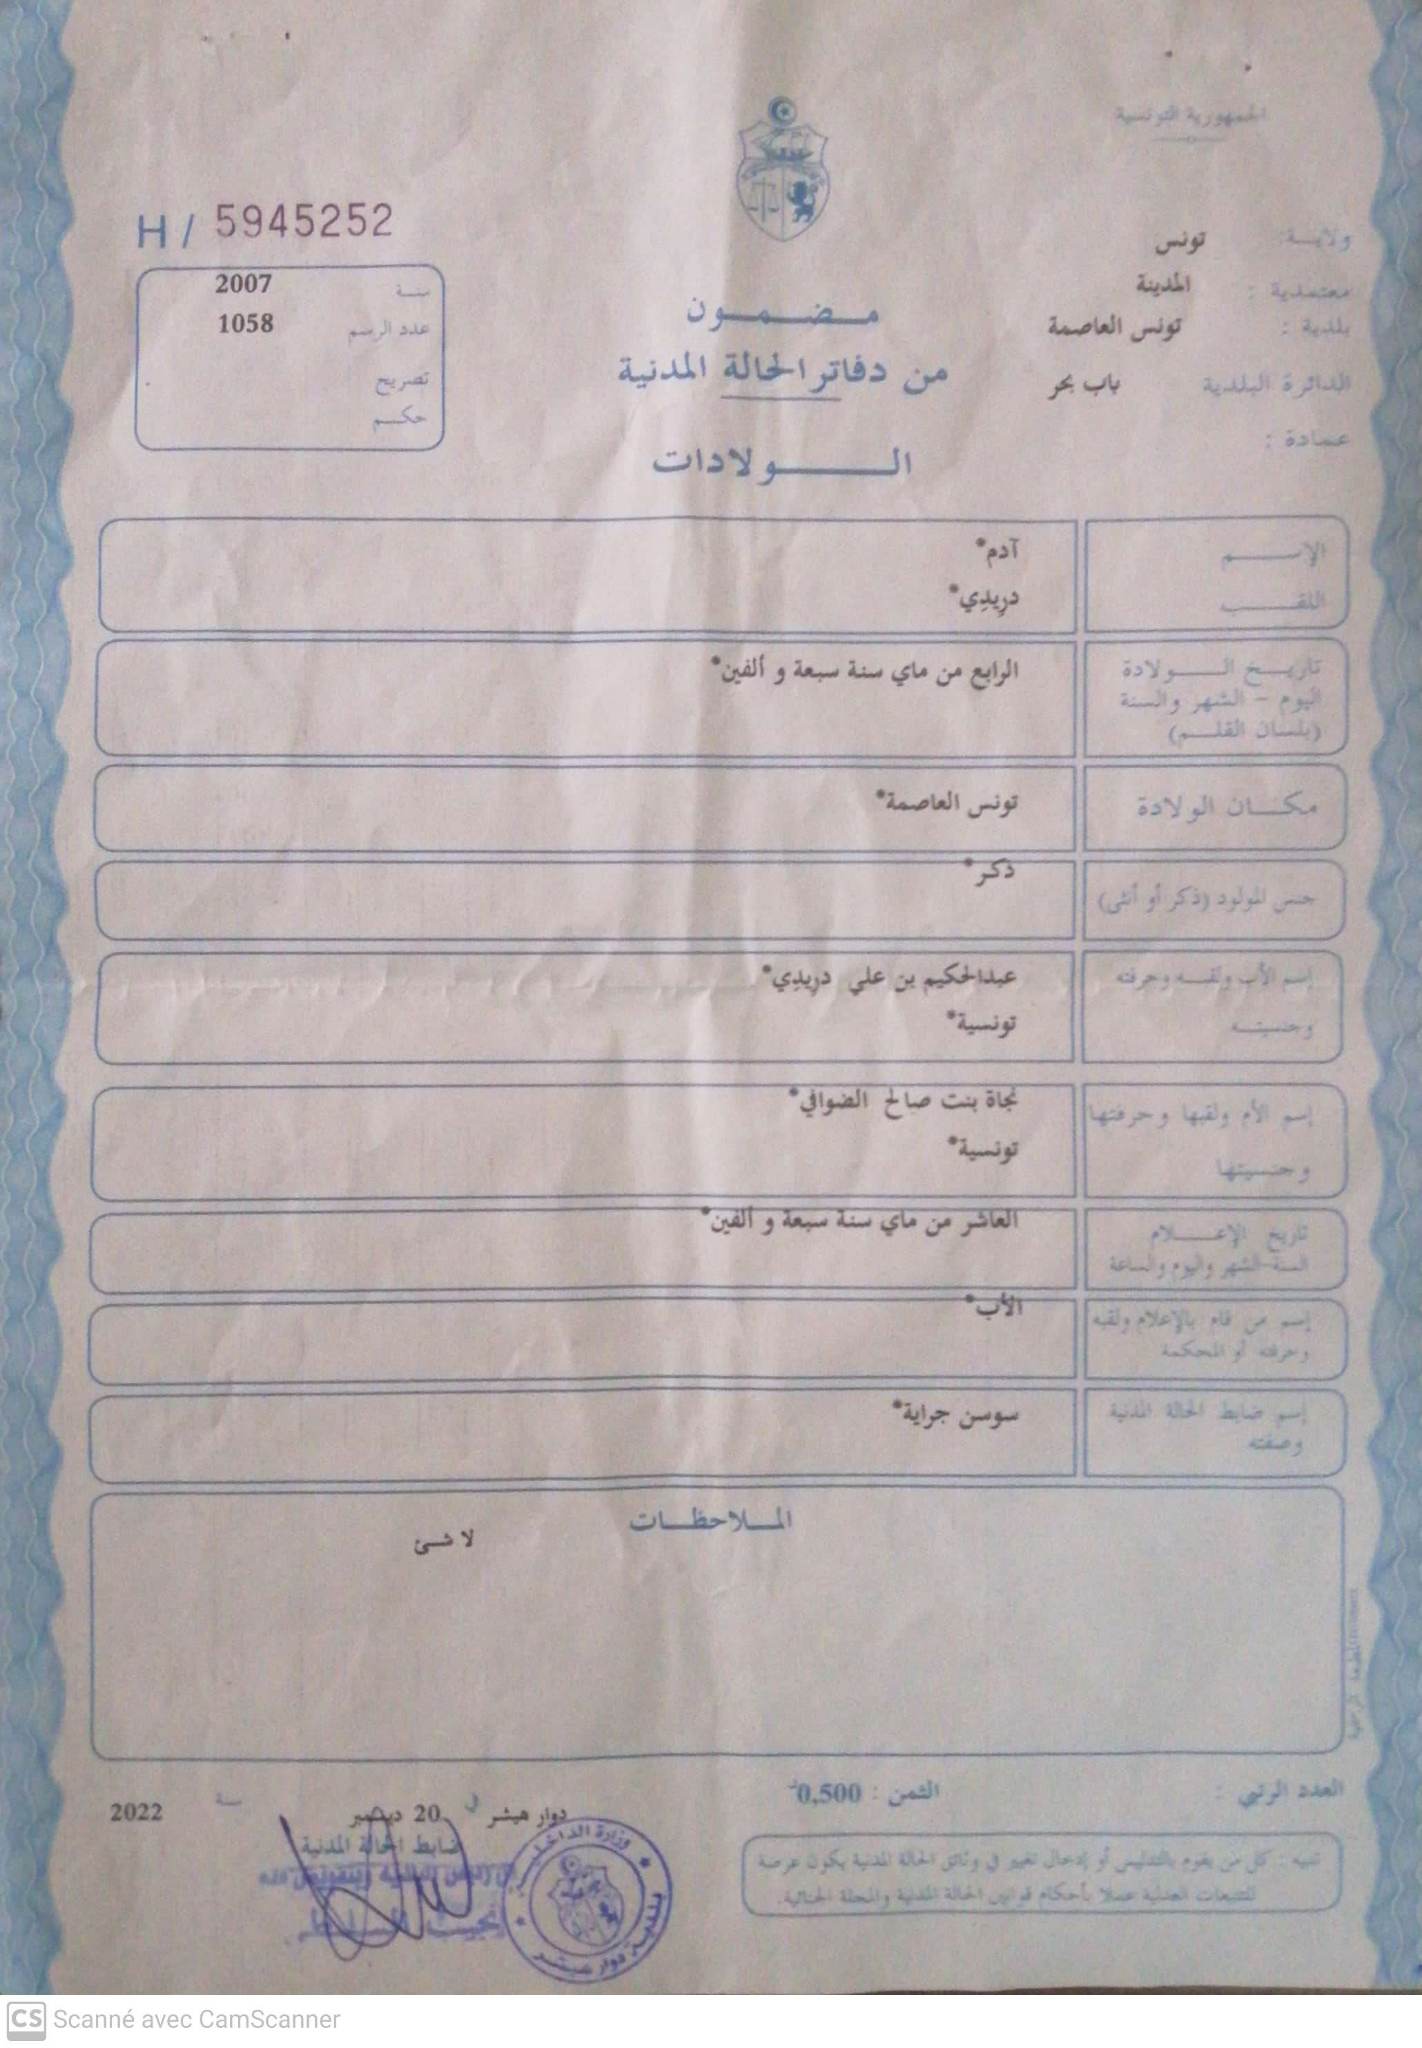 الجمهورية التونسية
H / 5945252
ولاية: تونس
معتمدية : المدينة
بلدية : تونس العاصمة
الدائرة البلدية باب بحر
عمادة :
سنة 2007
عدد الرسم 1058
تصريح
حكم
مضمون
من دفاتر الحالة المدنية
الولادات
الإسم آدم*
اللقب درِيدِي*
تاريخ الولادة الرابع من ماي سنة سبعة و ألفين*
اليوم - الشهر والسنة
(بلسان القلم)
مكان الولادة تونس العاصمة*
جنس المولود (ذكر أو أنثى) ذكر*
إسم الأب ولقبه وحرفته عبدالحكيم بن علي دريدِي*
وجنسيته تونسية*
إسم الأم ولقبها وحرفتها نجاة بنت صالح الضوافي*
وجنسيتها تونسية*
تاريخ الإعلام العاشر من ماي سنة سبعة و ألفين*
السنة-الشهر واليوم والساعة
إسم من قام بالإعلام ولقبه الأب*
وحرفته أو المحكمة
إسم ضابط الحالة المدنية سوسن جراية*
وصفته
الملاحظات
لا شئ
المطبعة الرسمية
العدد الرتبي : الثمن : 0,500د
دوار هيشر في 20 ديسمبر سنة 2022
ضابط الحالة المدنية
عن رئيس البلدية وبتفويض منه
تنبيه : كل من يقوم بالتدليس أو إدخال تغيير في وثائق الحالة المدنية يكون عرضة
للتتبعات العدلية عملا بأحكام قوانين الحالة المدنية والمجلة الجنائية.
وزارة الداخلية
بلدية دوار هيشر
CS Scanné avec CamScanner